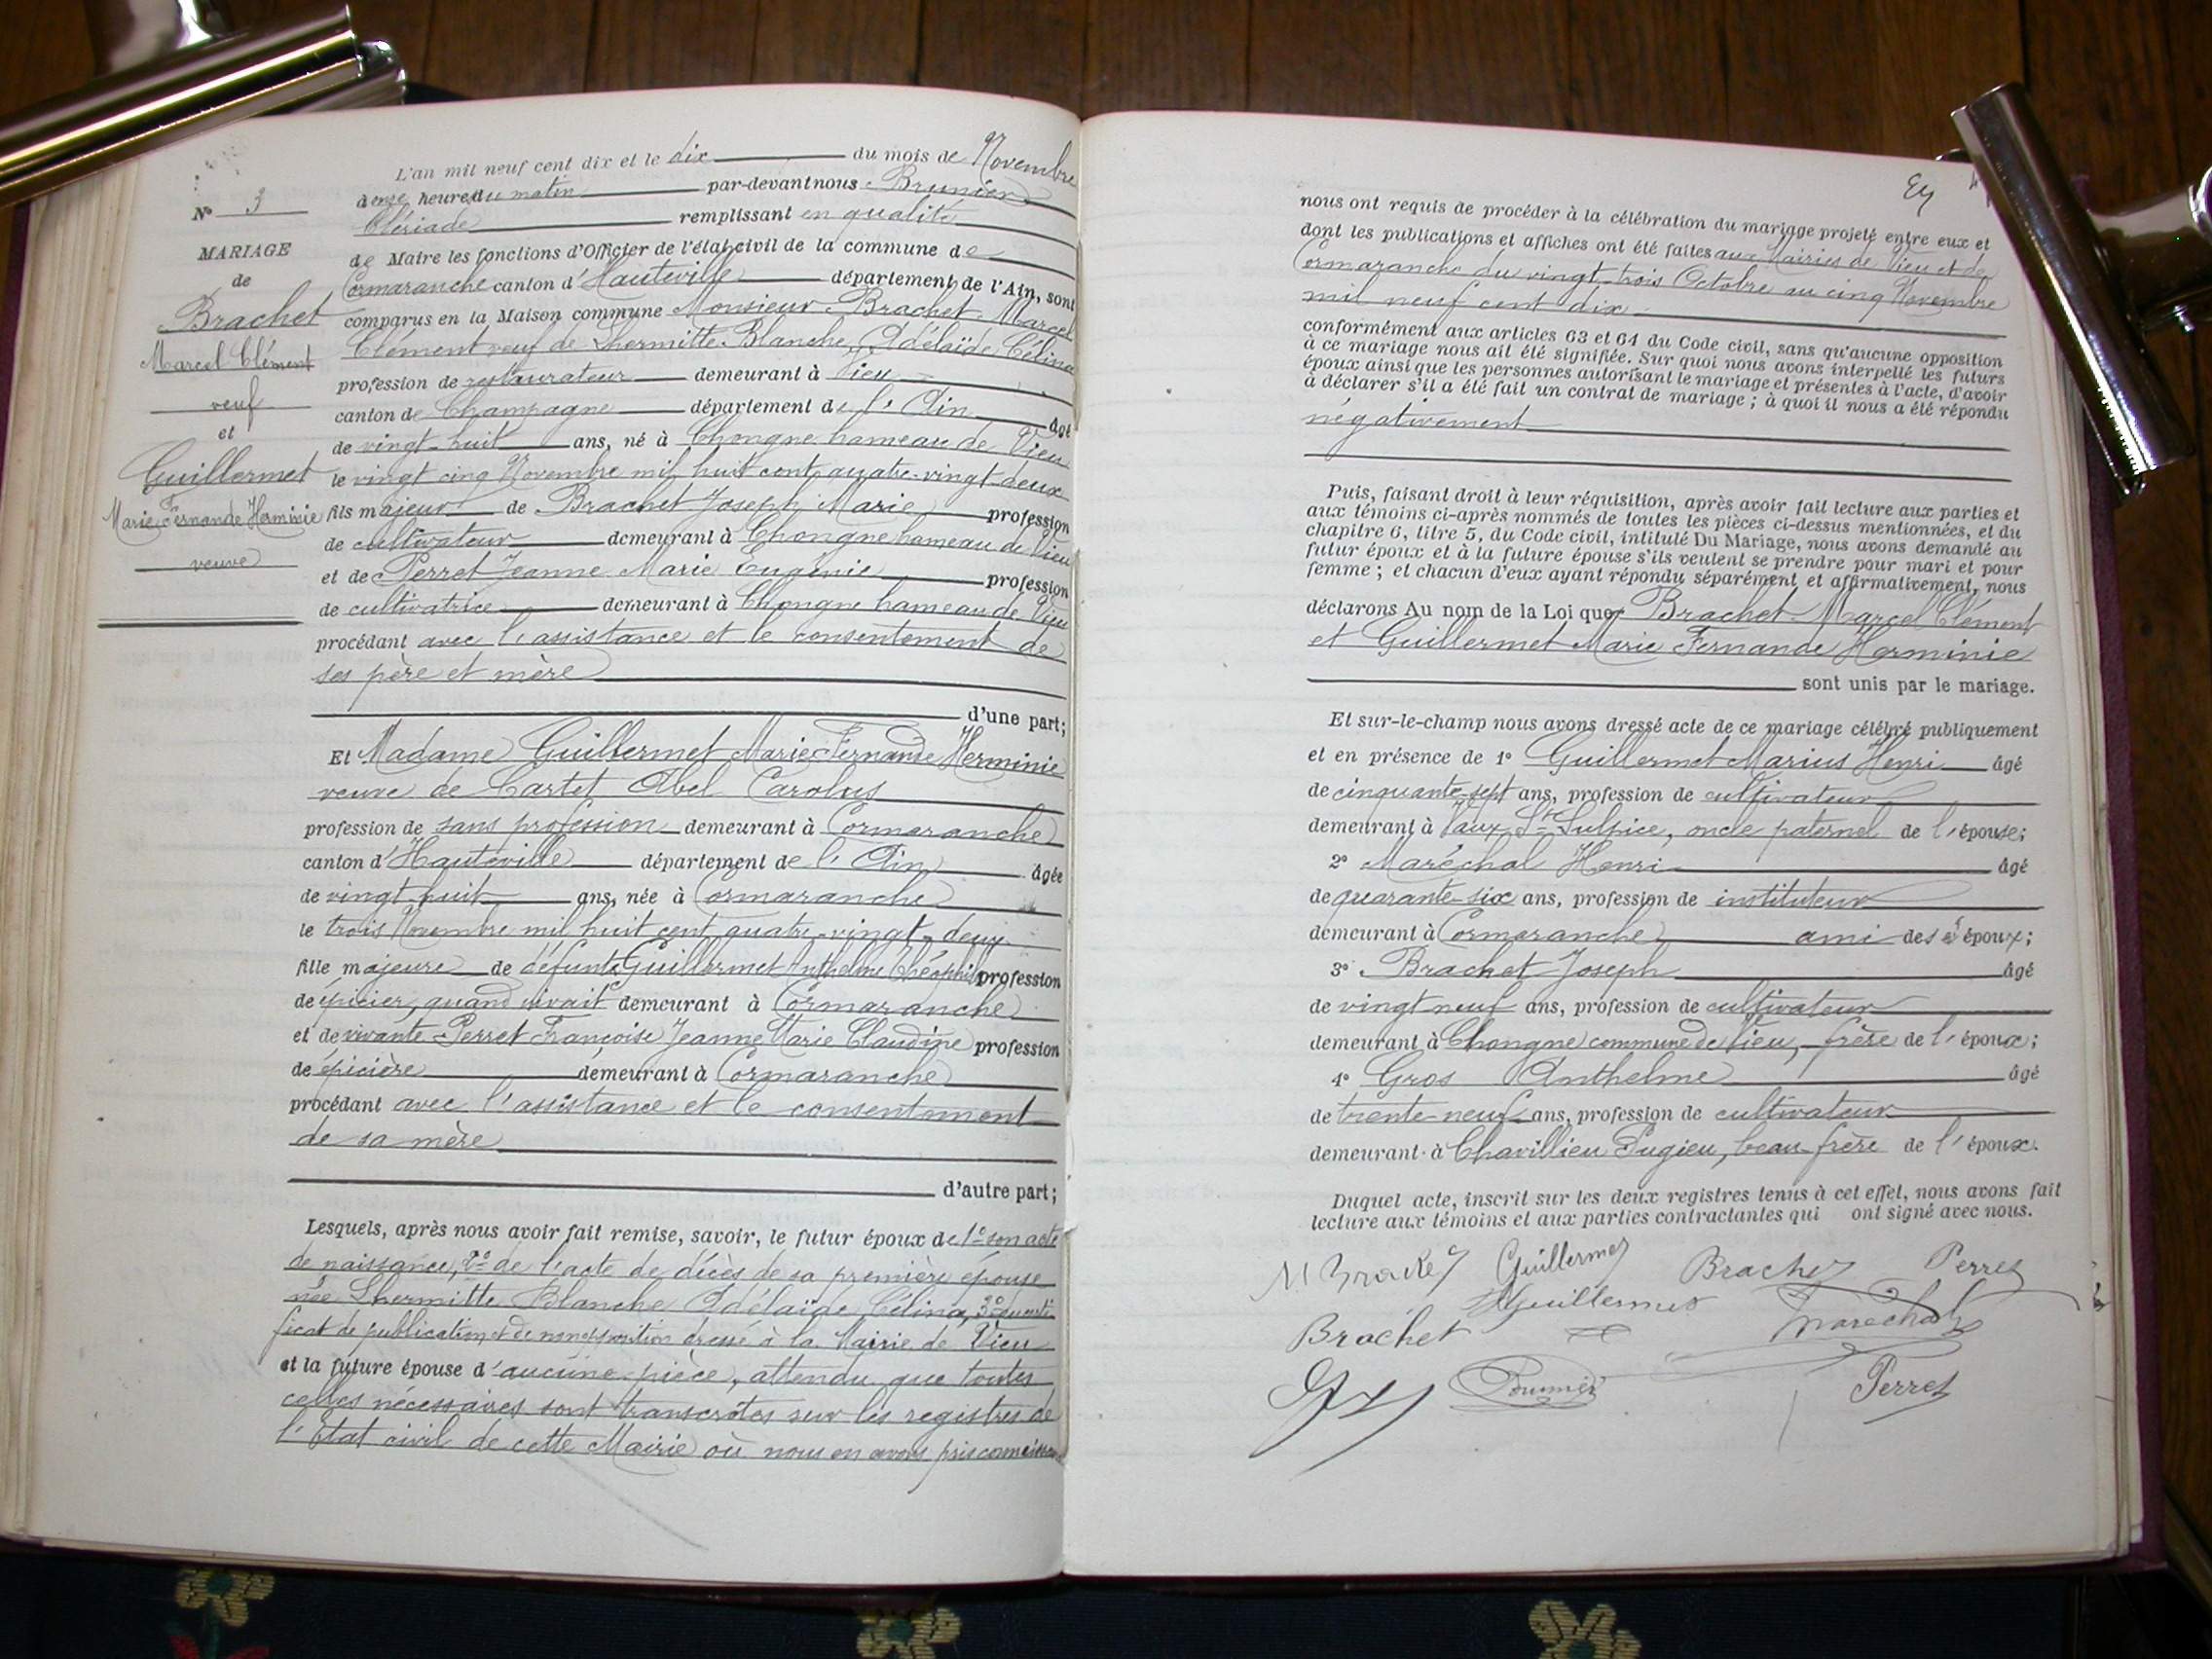 N° 3
MARIAGE
de
Brachet
Marcel Clément
veuf
et
Guillermet
Marie Fernande Herminie
veuve
L'an mil neuf cent dix et le dix du mois de Novembre
à onze heures du matin par-devant nous Brunier
Clériade remplissant en qualité
de Maire les fonctions d'Officier de l'état civil de la commune de
Cormaranche canton d'Hauteville département de l'Ain, sont
comparus en la Maison commune Monsieur Brachet Marcel
Clément veuf de Lhermitte Blanche Adélaïde Célina
profession de restaurateur demeurant à Vieu
canton de Champagne département de l'Ain âgé
de vingt-huit ans, né à Chongne hameau de Vieu
le vingt cinq Novembre mil huit cent quatre-vingt deux
fils majeur de Brachet Joseph Marie profession
de cultivateur demeurant à Chongne hameau de Vieu
et de Perret Jeanne Marie Eugénie profession
de cultivatrice demeurant à Chongne hameau de Vieu
procédant avec l'assistance et le consentement de
ses père et mère
d'une part;
Et Madame Guillermet Marie Fernande Herminie
veuve de Cartet Abel Carolus
profession de sans profession demeurant à Cormaranche
canton d'Hauteville département de l'Ain âgée
de vingt-huit ans, née à Cormaranche
le trois Novembre mil huit cent quatre-vingt-deux
fille majeure de défunt Guillermet Anthelme Théophile profession
de épicier, quand vivait demeurant à Cormaranche
et de vivante Perret Françoise Jeanne Marie Claudine profession
de épicière demeurant à Cormaranche
procédant avec l'assistance et le consentement
de sa mère
d'autre part;
Lesquels, après nous avoir fait remise, savoir, le futur époux de 1° son acte
de naissance, 2° de l'acte de décès de sa première épouse
née Lhermitte Blanche Adélaïde Célina, 3° du certi
ficat de publication et de non opposition dressé à la Mairie de Vieu
et la future épouse d'aucune pièce, attendu que toutes
celles nécessaires sont transcrites sur les registres de
l'Etat civil de cette Mairie où nous en avons pris connaissance
nous ont requis de procéder à la célébration du mariage projeté entre eux et
dont les publications et affiches ont été faites aux Mairies de Vieu et de
Cormaranche du vingt-trois Octobre au cinq Novembre
mil neuf cent dix
conformément aux articles 63 et 64 du Code civil, sans qu'aucune opposition
à ce mariage nous ait été signifiée. Sur quoi nous avons interpellé les futurs
époux ainsi que les personnes autorisant le mariage et présentes à l'acte, d'avoir
à déclarer s'il a été fait un contrat de mariage; à quoi il nous a été répondu
négativement
Puis, faisant droit à leur réquisition, après avoir fait lecture aux parties et
aux témoins ci-après nommés de toutes les pièces ci-dessus mentionnées, et du
chapitre 6, titre 5, du Code civil, intitulé Du Mariage, nous avons demandé au
futur époux et à la future épouse s'ils veulent se prendre pour mari et pour
femme; et chacun d'eux ayant répondu séparément et affirmativement, nous
déclarons Au nom de la Loi que Brachet Marcel Clément
et Guillermet Marie Fernande Herminie
sont unis par le mariage.
Et sur-le-champ nous avons dressé acte de ce mariage célébré publiquement
et en présence de 1° Guillermet Marius Henri âgé
de cinquante-sept ans, profession de cultivateur
demeurant à Vaux St Sulpice, oncle paternel de l'épouse;
2° Maréchal Henri âgé
de quarante-six ans, profession de instituteur
demeurant à Cormaranche ami des époux;
3° Brachet Joseph âgé
de vingt neuf ans, profession de cultivateur
demeurant à Chongne commune de Vieu, frère de l'époux;
4° Gros Anthelme âgé
de trente-neuf ans, profession de cultivateur
demeurant à Chavillieu Pugieu, beau-frère de l'époux.
Duquel acte, inscrit sur les deux registres tenus à cet effet, nous avons fait
lecture aux témoins et aux parties contractantes qui ont signé avec nous.
M Brachet Guillermet Brachet Perret
Brachet Guillermet Marechal
Perret